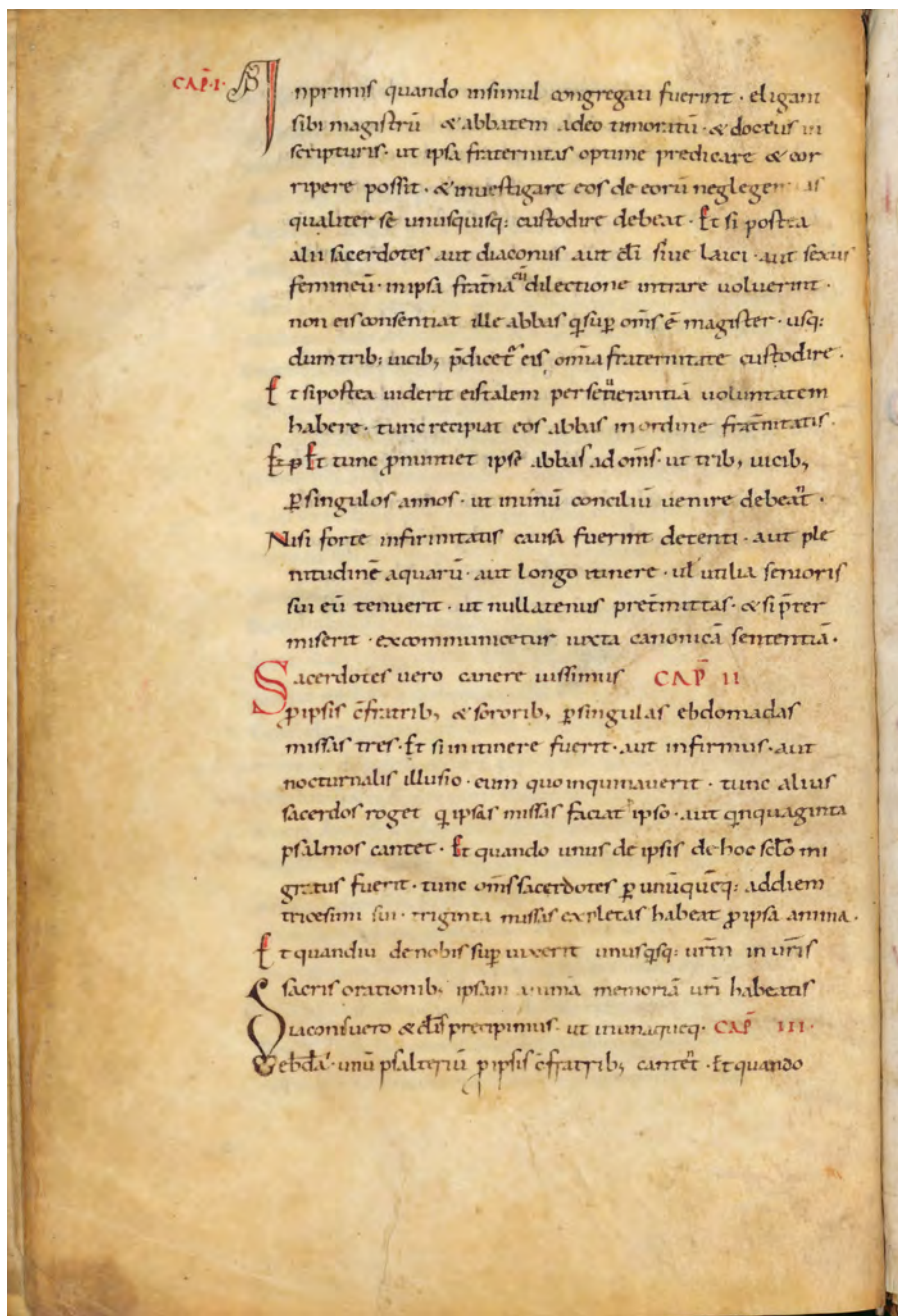 CAP̄·I· Inprimis quando insimul congregati fuerint · eligant
sibi magistrū & abbatem adeo timoratū · & doctus in
scripturis · ut ipsa fraternitas optime predicare & cor
ripere possit · & inuestigare eos de eorū neglegen as
qualiter se unusquisq: custodire debeat · Et si postea
alii sacerdotes aut diaconus aut cłi siue laici · aut sexus
femineū · in ipsa frat̄na cū dilectione intrare uoluerint ·
non eis consentiat ille abbas q̄ sup̱ om̄s ē magister · usq:
dum trib; uicib; p̄dicet̄ eis om̄ia fraternitate custodire ·
Et si postea uiderit eis talem perseuerantiā uoluntatem
habere · tunc recipiat eos abbas in ordine frat̄nitatis ·
Et tunc p̱nuntiet ipse abbas ad om̄s · ut trib; uicib;
ꝑ singulos annos · ut in unū conciliū uenire debeat̄ ·
Nisi forte infirmitatis causa fuerint detenti · aut ple
nitudinē aquarū · aut longo itinere · uł utilia senioris
sui eū tenuerit · ut nullatenus pret̄mittas · & si p̄ter
miserit · excommunicetur iuxta canonicā sententiā ·
Sacerdotes uero canere iussimus CAP̄ II
ꝓ ipsis c̄fratrib; & sororib; ꝑ singulas ebdomadas
missas tres · Et si in itinere fuerit · aut infirmus · aut
nocturnalis illusio · eum quoinquinauerit · tunc alius
sacerdos roget q ipsas missas faciat ipso · aut q̄nquaginta
psalmos cantet · Et quando unus de ipsis de hoc scłō mi
gratus fuerit · tunc om̄s sacerdotes ꝑ unūquēq: ad diem
tricesimi sui · triginta missas expletas habeat ꝓ ipsa anima ·
Et quandiu de nobis sup̱ uixerit unusq̄sq: ur̄m in ur̄is
sacris orationib; ipsam anima memoriā uri habeatis
Diaconi uero & cłis precipimus · ut in unaqueq · CAP̄ III ·
ebda · unū psalteriū ꝓ ipsis c̄fratrib; cantet̄ · Et quando